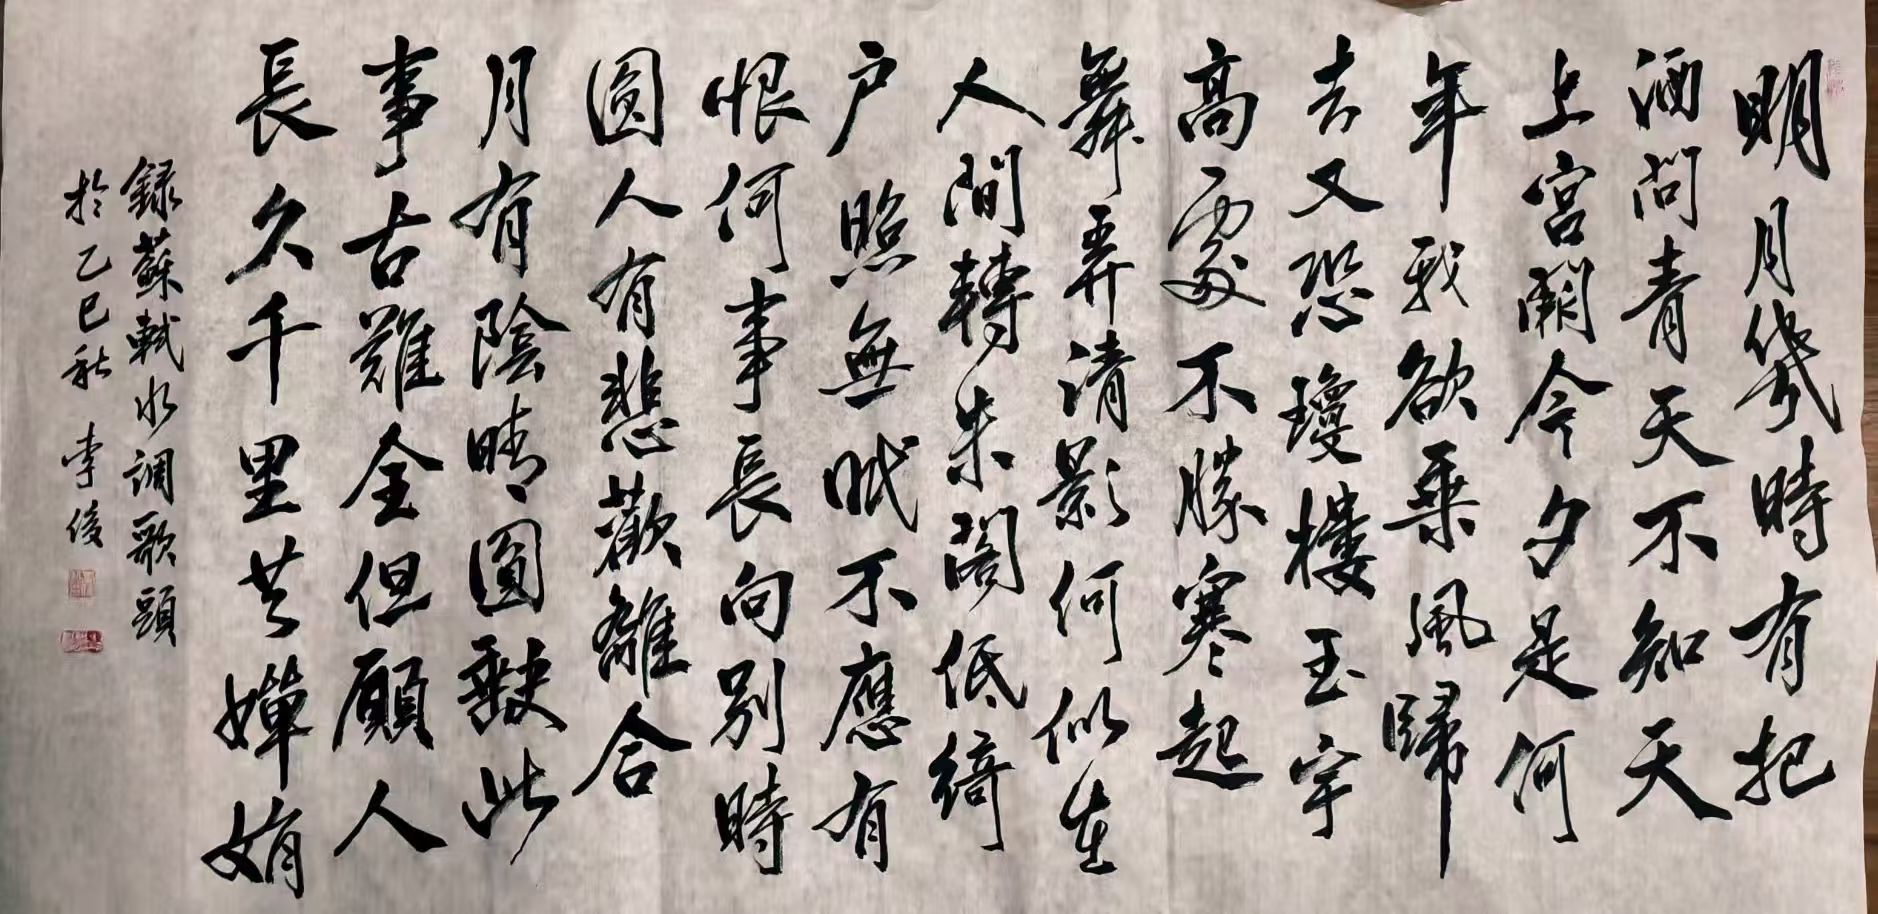 明月幾時有把
酒問青天不知天
上宮闕今夕是何
年我欲乘風歸
去又恐瓊樓玉宇
高處不勝寒起
舞弄清影何似在
人間轉朱閣低綺
户照無眠不應有
恨何事長向別時
圓人有悲歡離合
月有陰晴圓缺此
事古難全但願人
長久千里共嬋娟
錄蘇軾水調歌頭
於乙巳秋 李俊